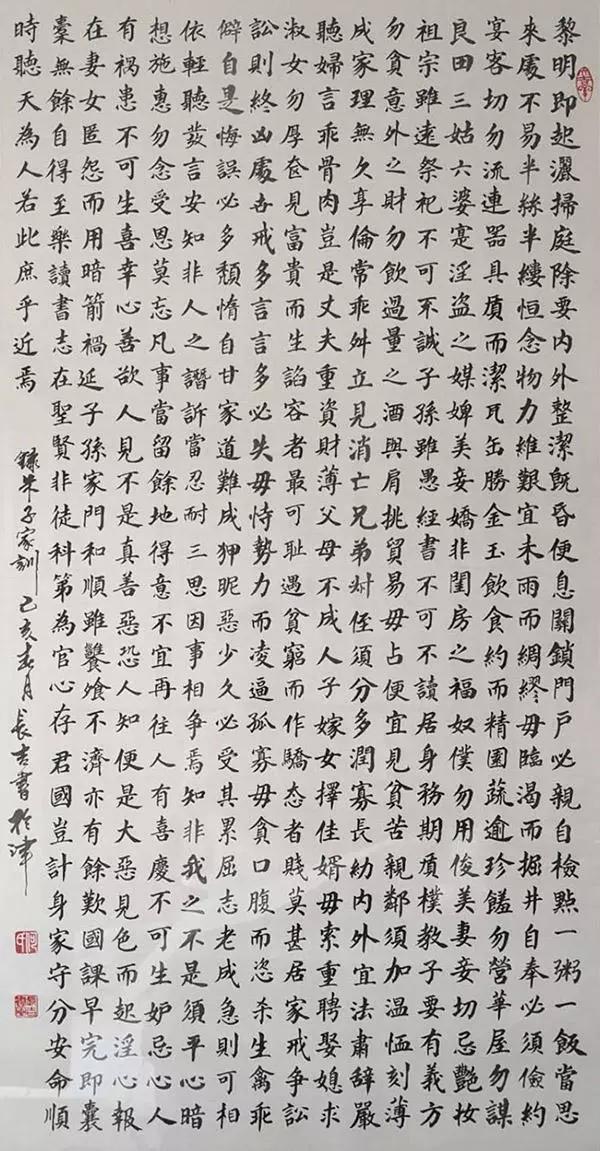 黎明即起灑掃庭除要內外整潔既昏便息關鎖門户必親自檢點一粥一飯當思
來處不易半絲半縷恒念物力維艱宜未雨而綢繆毋臨渴而掘井自奉必須儉約
宴客切勿流連器具質而潔瓦缶勝金玉飲食約而精園蔬逾珍饈勿營華屋勿謀
良田三姑六婆寔淫盜之媒婢美妾嬌非閨房之福奴僕勿用俊美妻妾切忌艷妝
祖宗雖遠祭祀不可不誠子孫雖愚經書不可不讀居身務期質樸教子要有義方
勿貪意外之財勿飲過量之酒與肩挑貿易毋占便宜見貧苦親鄰須加温恤刻薄
成家理無久享倫常乖舛立見消亡兄弟叔侄須分多潤寡長幼內外宜法肅辭嚴
聽婦言乖骨肉豈是丈夫重資財薄父母不成人子嫁女擇佳婿毋索重聘娶媳求
淑女勿厚奩見富貴而生諂容者最可耻遇貧窮而作驕態者賤莫甚居家戒爭訟
訟則終凶處世戒多言言多必失毋恃勢力而凌逼孤寡毋貪口腹而恣杀生禽乖
僻自是悔誤必多頹惰自甘家道難成狎昵惡少久必受其累屈志老成急則可相
依輕聽發言安知非人之譖訴當忍耐三思因事相爭焉知非我之不是須平心暗
想施惠勿念受恩莫忘凡事當留餘地得意不宜再往人有喜慶不可生妒忌心人
有禍患不可生喜幸心善欲人見不是真善惡恐人知便是大惡見色而起淫心報
在妻女匿怨而用暗箭禍延子孫家門和順雖饔飧不濟亦有餘歡國課早完即囊
橐無餘自得至樂讀書志在聖賢非徒科第為官心存君國豈計身家守分安命順
時聽天為人若此庶乎近焉
錄朱子家訓 己亥春月長吉書於津